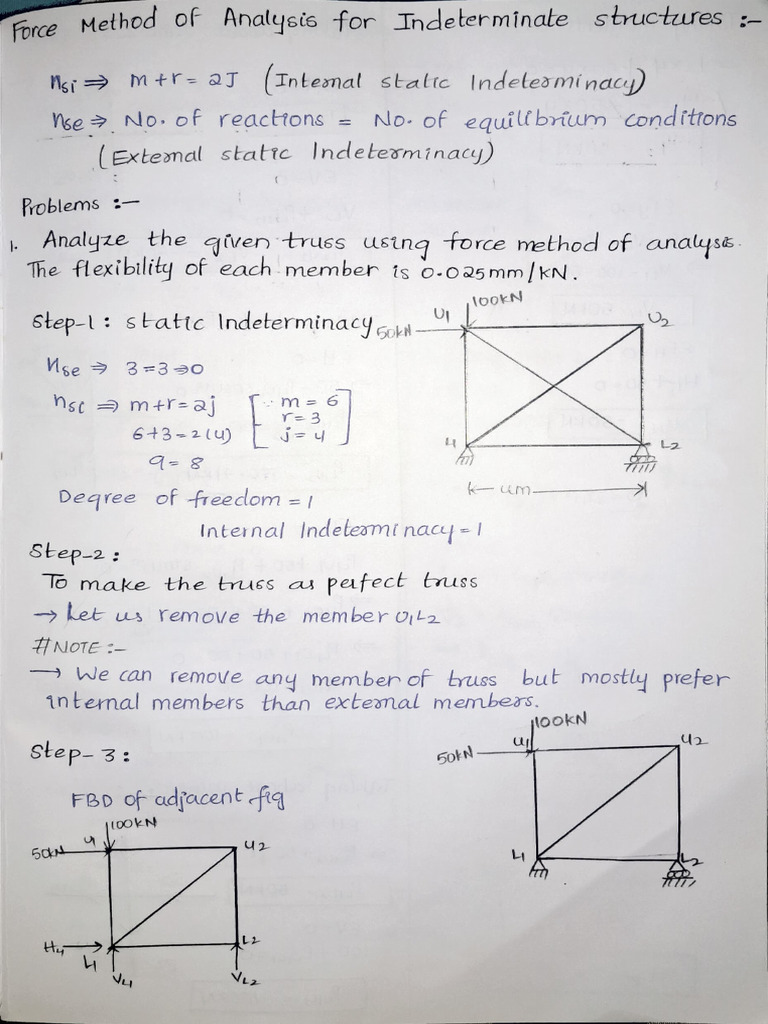 Force Method of Analysis for Indeterminate structures :-
nsi ⇒ m+r = 2J (Internal static Indeterminacy)
nse ⇒ No. of reactions = No. of equilibrium conditions
(External static Indeterminacy)
Problems :-
1. Analyze the given truss using force method of analysis.
The flexibility of each member is 0.025mm/kN.
Step-1 : static Indeterminacy
U1 100kN
50kN
U2
L1
L2
4m
nse ⇒ 3=3⇒0
nsi ⇒ m+r=2j [∵ m = 6
6+3=2(4) r=3
9= 8 j=4]
Degree of freedom = 1
Internal Indeterminacy = 1
Step-2 :
To make the truss as perfect truss
→ Let us remove the member U1L2
#NOTE :-
→ We can remove any member of truss but mostly prefer
internal members than external members.
Step-3 :
50kN
U1 100kN
U2
L1
L2
FBD of adjacent fig
100kN
50kN
U1
U2
HL1
L1
L2
VL1
VL2